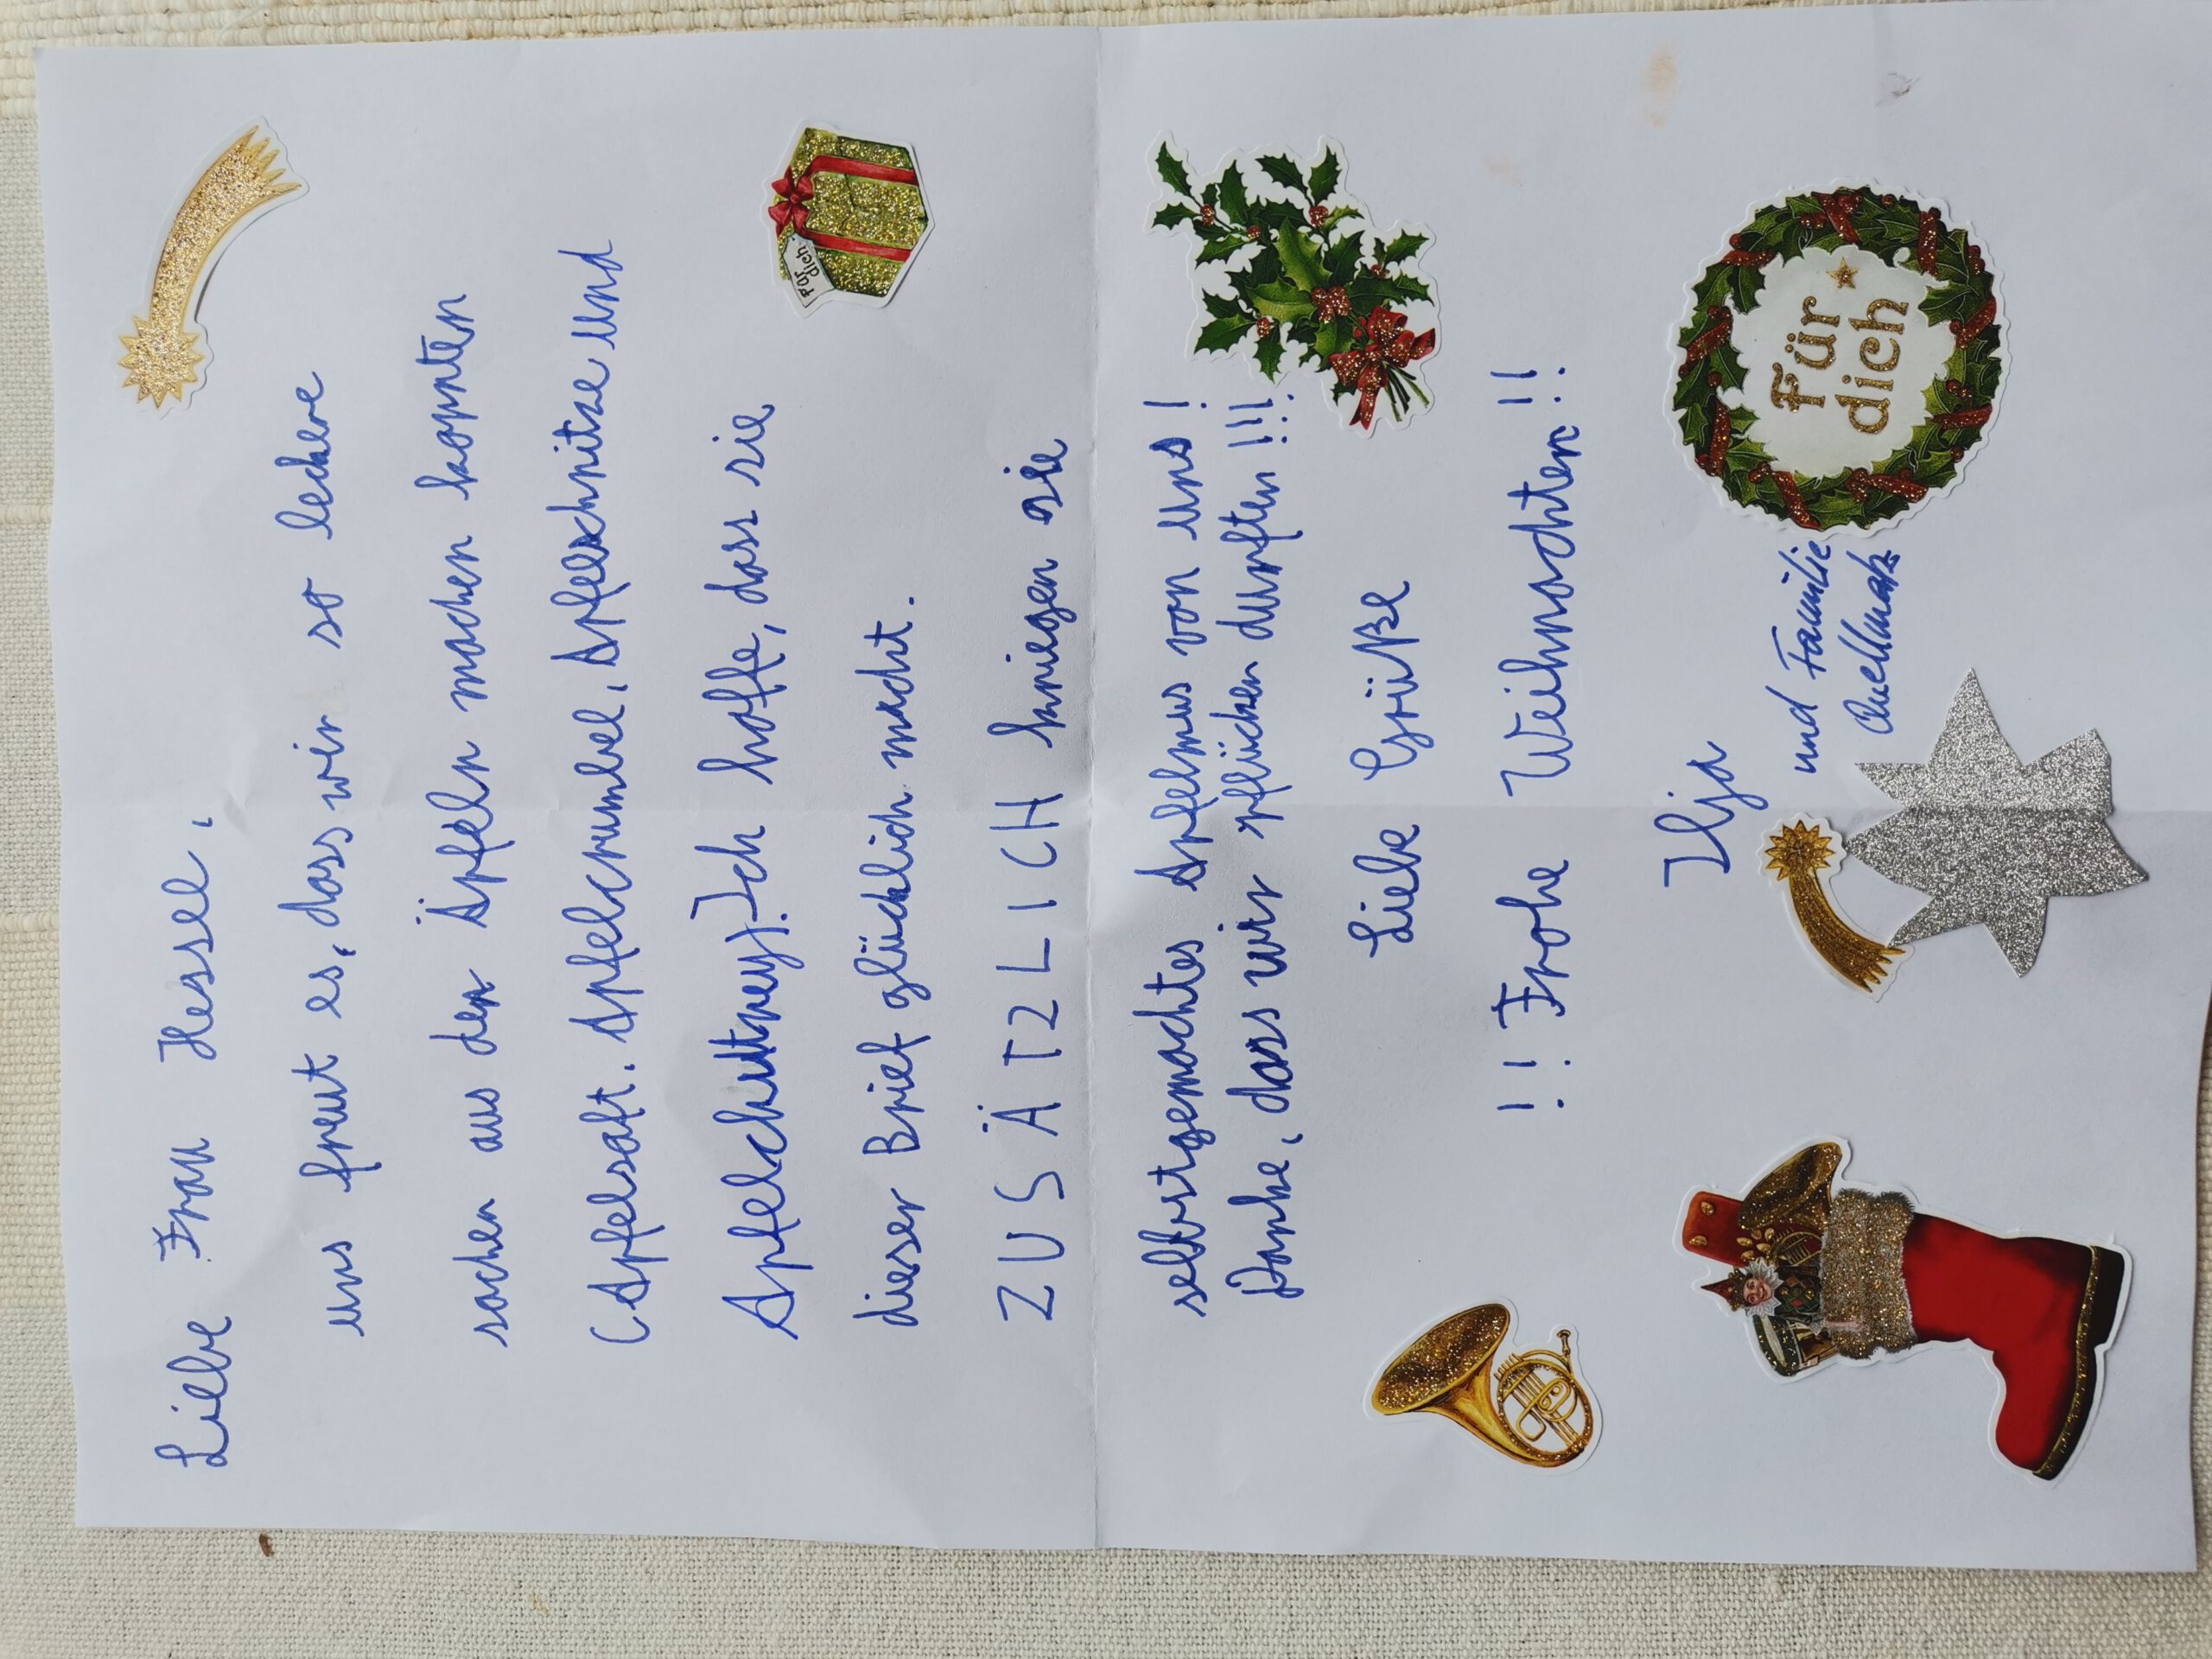 Liebe Frau Hessel,
uns freut es, dass wir so leckere
sachen aus den Äpfeln machen konnten
(Apfelsaft. Apfelcrumbel, Apfelschnitze und
Apfelchutney). Ich hoffe, dass sie
Für
dich
dieser Brief glücklich macht.
ZUSÄTZLICH kriegen sie
selbstgemachtes Apfelmus von uns!
Danke, dass wir pflücken durften!!!
Liebe Grüße
!! Frohe Weihnachten!!
Ilja
und Familie
Für
dich